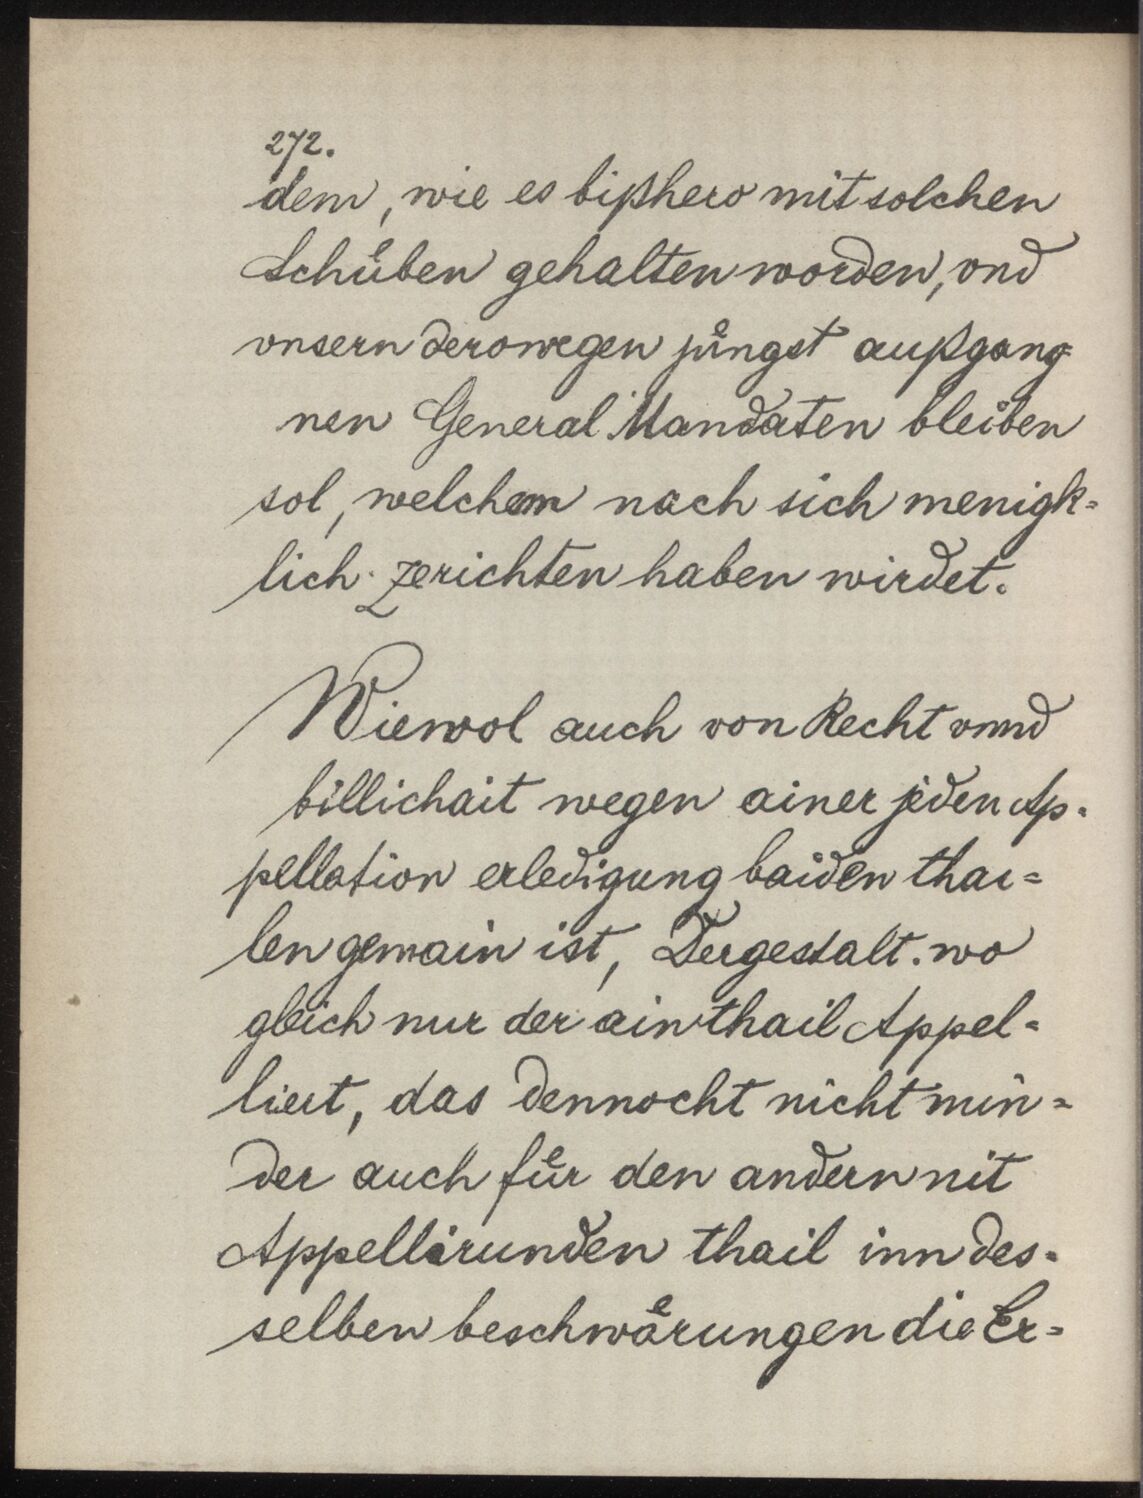 272.
dem, wie es bißhero mit solchen
Schuͤben gehalten worden, vnd
vnsern derowegen juͤngst außgang
nen General Mandaten bleiben
sol, welchem nach sich menigk=
lich zerichten haben wirdet.
Wiewol auch von Recht vnnd
billichait wegen ainer jeden Ap=
pellation erledigung baiden thai=
len gemain ist, Dergestalt. wo
gleich nur der ain thail Appel=
liert, das dennocht nicht min=
der auch fuͤr den andern nit
Appellirunden thail inn des=
selben beschwaͤrungen die Er=